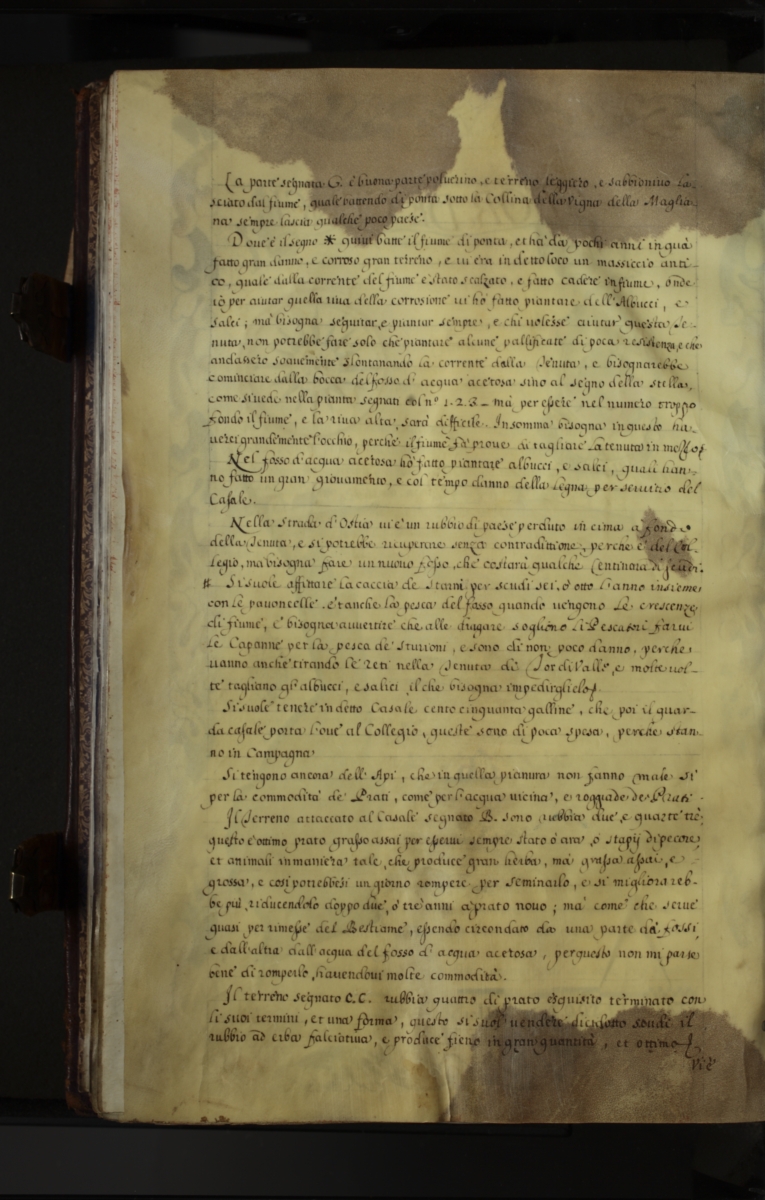 La parte segnata G. è buona parte polverino, e terreno leggiero, e sabbionivo la-
sciato dal fiume, quale battendo di ponta sotto la Collina della Vigna della Maglia-
na sempre lascia qualche poco paese.
Dove è il segno * quivi batte il fiume di ponta, et hà da pochi anni in quà
fatto gran danno, e corroso gran terreno, e vi era in detto loco un massiccio anti-
co, quale dalla corrente del fiume è stato scalzato, e fatto cadere in fiume, onde
iò per aiutar quella riva dalla corrosione vi hò fatto piantare dell'Albucci, e
salci; mà bisogna seguitar, e piantar sempre, e chi volesse aiutar questa te-
nuta, non potrebbe fare solo che piantare alcune passificate di poca resistenza, e che
andassero soavemente slontanando la corrente dalla Tenuta, e bisognarebbe
cominciare dalla bocca del fosso d'acqua acetosa sino al segno della stella,
come si vede nella pianta segnati col nº 1.2.3 - mà per essere nel numero troppo
fondo il fiume, e la riva alta, sarà difficile. Insomma bisogna in questo ha-
verci grandemente l'occhio, perche il fiume fà prove di tagliare la tenuta in mezzo.
Nel fosso d'acqua acetosa hò fatto piantare albucci, e salci, quali han-
no fatto un gran giovamento, e col tempo danno della legna per servitio del
Casale.
Nella strada d'Ostia vi è un rubbio di paese perduto in cima a fondo
della Tenuta, e si potrebbe ricuperare senza contradittione, perche è del Col-
legio, mà bisogna fare un nuovo fosso, che costarà qualche Centinara di scudi.
# Si suole affittare la caccia de Starni per scudi sei, ò otto l'anno insieme
con le pavoncelle. è tanche la pesca del fosso quando vengono le crescenze
di fiume, è bisogna avvertire che alle dragare sogliono li Pescatori farvi
le Capanne per la pesca de sturioni, e sono di non poco danno, perche
vanno anche tirando le reti nella Tenuta di Tor di Valle, e molte vol-
te tagliano gl'albucci, e salici, il che bisogna impedirglielo.
Si suole tenere in detto Casale cento cinquanta galline, che poi il guar-
da casale porta l'ove al Collegio, queste sono di poca spesa, perche stan-
no in Campagna.
Si tengono ancora dell'Api, che in quella pianura non fanno male si
per la commodità de Prati, come per l'acqua vicina, e roggiade de Prati.
Il Terreno attaccato al Casale segnato B. sono rubbia due, e quarte trè,
questo è ottimo prato grasso assai per esservi sempre stato ò ara, ò stazij di pecore,
et animali in maniera tale, che produce gran herba, mà grassa assai, e
grossa, e così potrebbesi un giorno rompere per seminarlo, e si migliorareb-
be più riducendolo doppo due, ò tre anni à prato novo; mà come che serve
quasi per rimesse del Bestiame, essendo circondato da una parte da fossi,
e dall'altra dall'acqua del fosso d'acqua acetosa, per questo non mi parse
bene di romperlo, havendovi molte commodità.
Il terreno segnato C.C. rubbia quattro di prato esquisito terminato con
li suoi termini, et una forma, questo si suol vendere diciotto scudi il
rubbio ad erba falciativa, e produce fieno in gran quantità, et ottimo.
Vi è